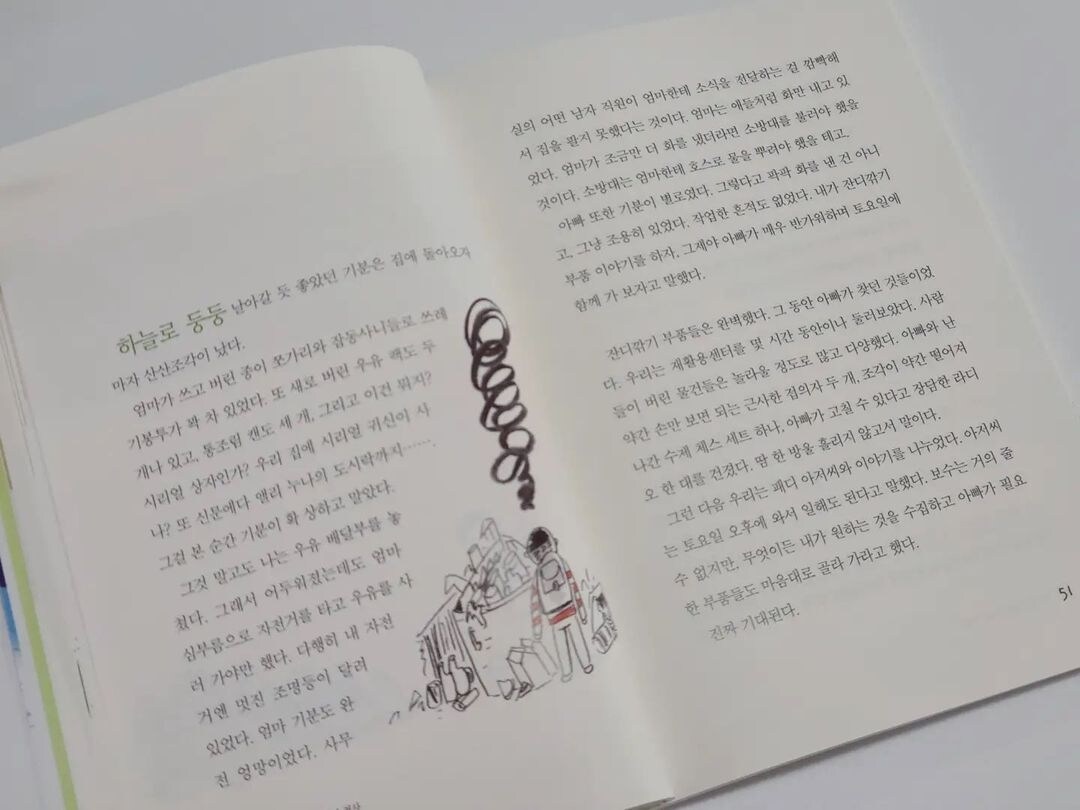 하늘로 둥둥 날아갈 듯 좋았던 기분은 집에 돌아오자
마자 산산조각이 났다.
엄마가 쓰고 버린 종이 쪼가리와 잡동사니들로 쓰레
기봉투가 꽉 차 있었다. 또 새로 버린 우유 팩도 두
개나 있고, 통조림 캔도 세 개, 그리고 이건 뭐지?
시리얼 상자인가? 우리 집에 시리얼 귀신이 사
나? 또 신문에다 앨리 누나의 도시락까지……
그걸 본 순간 기분이 확 상하고 말았다.
그것 말고도 나는 우유 배달부를 놓
쳤다. 그래서 어두워졌는데도 엄마
심부름으로 자전거를 타고 우유를 사
러 가야만 했다. 다행히 내 자전
거엔 멋진 조명등이 달려
있었다. 엄마 기분도 완
전 엉망이었다. 사무
실의 어떤 남자 직원이 엄마한테 소식을 전달하는 걸 깜빡해
서 집을 팔지 못했다는 것이다. 엄마는 애들처럼 화만 내고 있
었다. 엄마가 조금만 더 화를 냈더라면 소방대를 불러야 했을
것이다. 소방대는 엄마한테 호스로 물을 뿌려야 했을 테고.
아빠 또한 기분이 별로였다. 그렇다고 팍팍 화를 낸 건 아니
고, 그냥 조용히 있었다. 작업한 흔적도 없었다. 내가 잔디깎기
부품 이야기를 하자, 그제야 아빠가 매우 반가워하며 토요일에
함께 가 보자고 말했다.
잔디깎기 부품들은 완벽했다. 그 동안 아빠가 찾던 것들이었
다. 우리는 재활용센터를 몇 시간 동안이나 둘러보았다. 사람
들이 버린 물건들은 놀라울 정도로 많고 다양했다. 아빠와 난
약간 손만 보면 되는 근사한 접의자 두 개, 조각이 약간 떨어져
나간 수제 체스 세트 하나, 아빠가 고칠 수 있다고 장담한 라디
오 한 대를 건졌다. 땀 한 방울 흘리지 않고서 말이다.
그런 다음 우리는 패디 아저씨와 이야기를 나누었다. 아저씨
는 토요일 오후에 와서 일해도 된다고 말했다. 보수는 거의 줄
수 없지만, 무엇이든 내가 원하는 것을 수집하고 아빠가 필요
한 부품들도 마음대로 골라 가라고 했다.
진짜 기대된다.
51